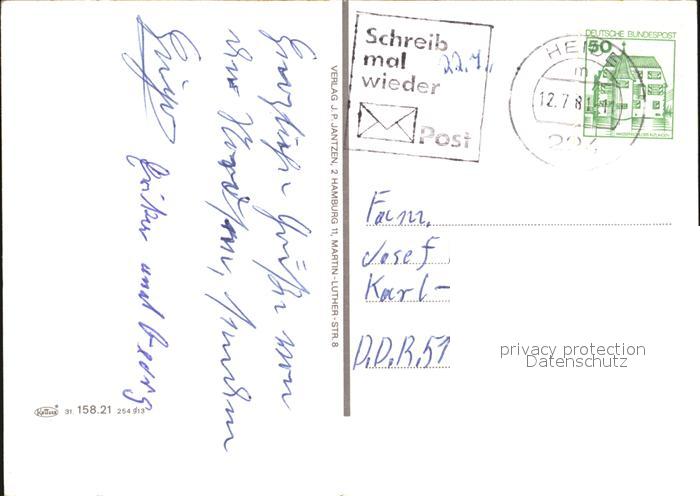 Herzliche Grüße von
der Nordsee, senden
Erika und Georg
VERLAG J. P. JANTZEN, 2 HAMBURG 11, MARTIN-LUTHER-STR. 8
31. 158.21 254 913
Schreib
mal
wieder
Post
22.7.
HEI
12.7.8
224
DEUTSCHE BUNDESPOST
50
Fam.
Josef
Karl-
D.D.R. 51
privacy protection
Datenschutz